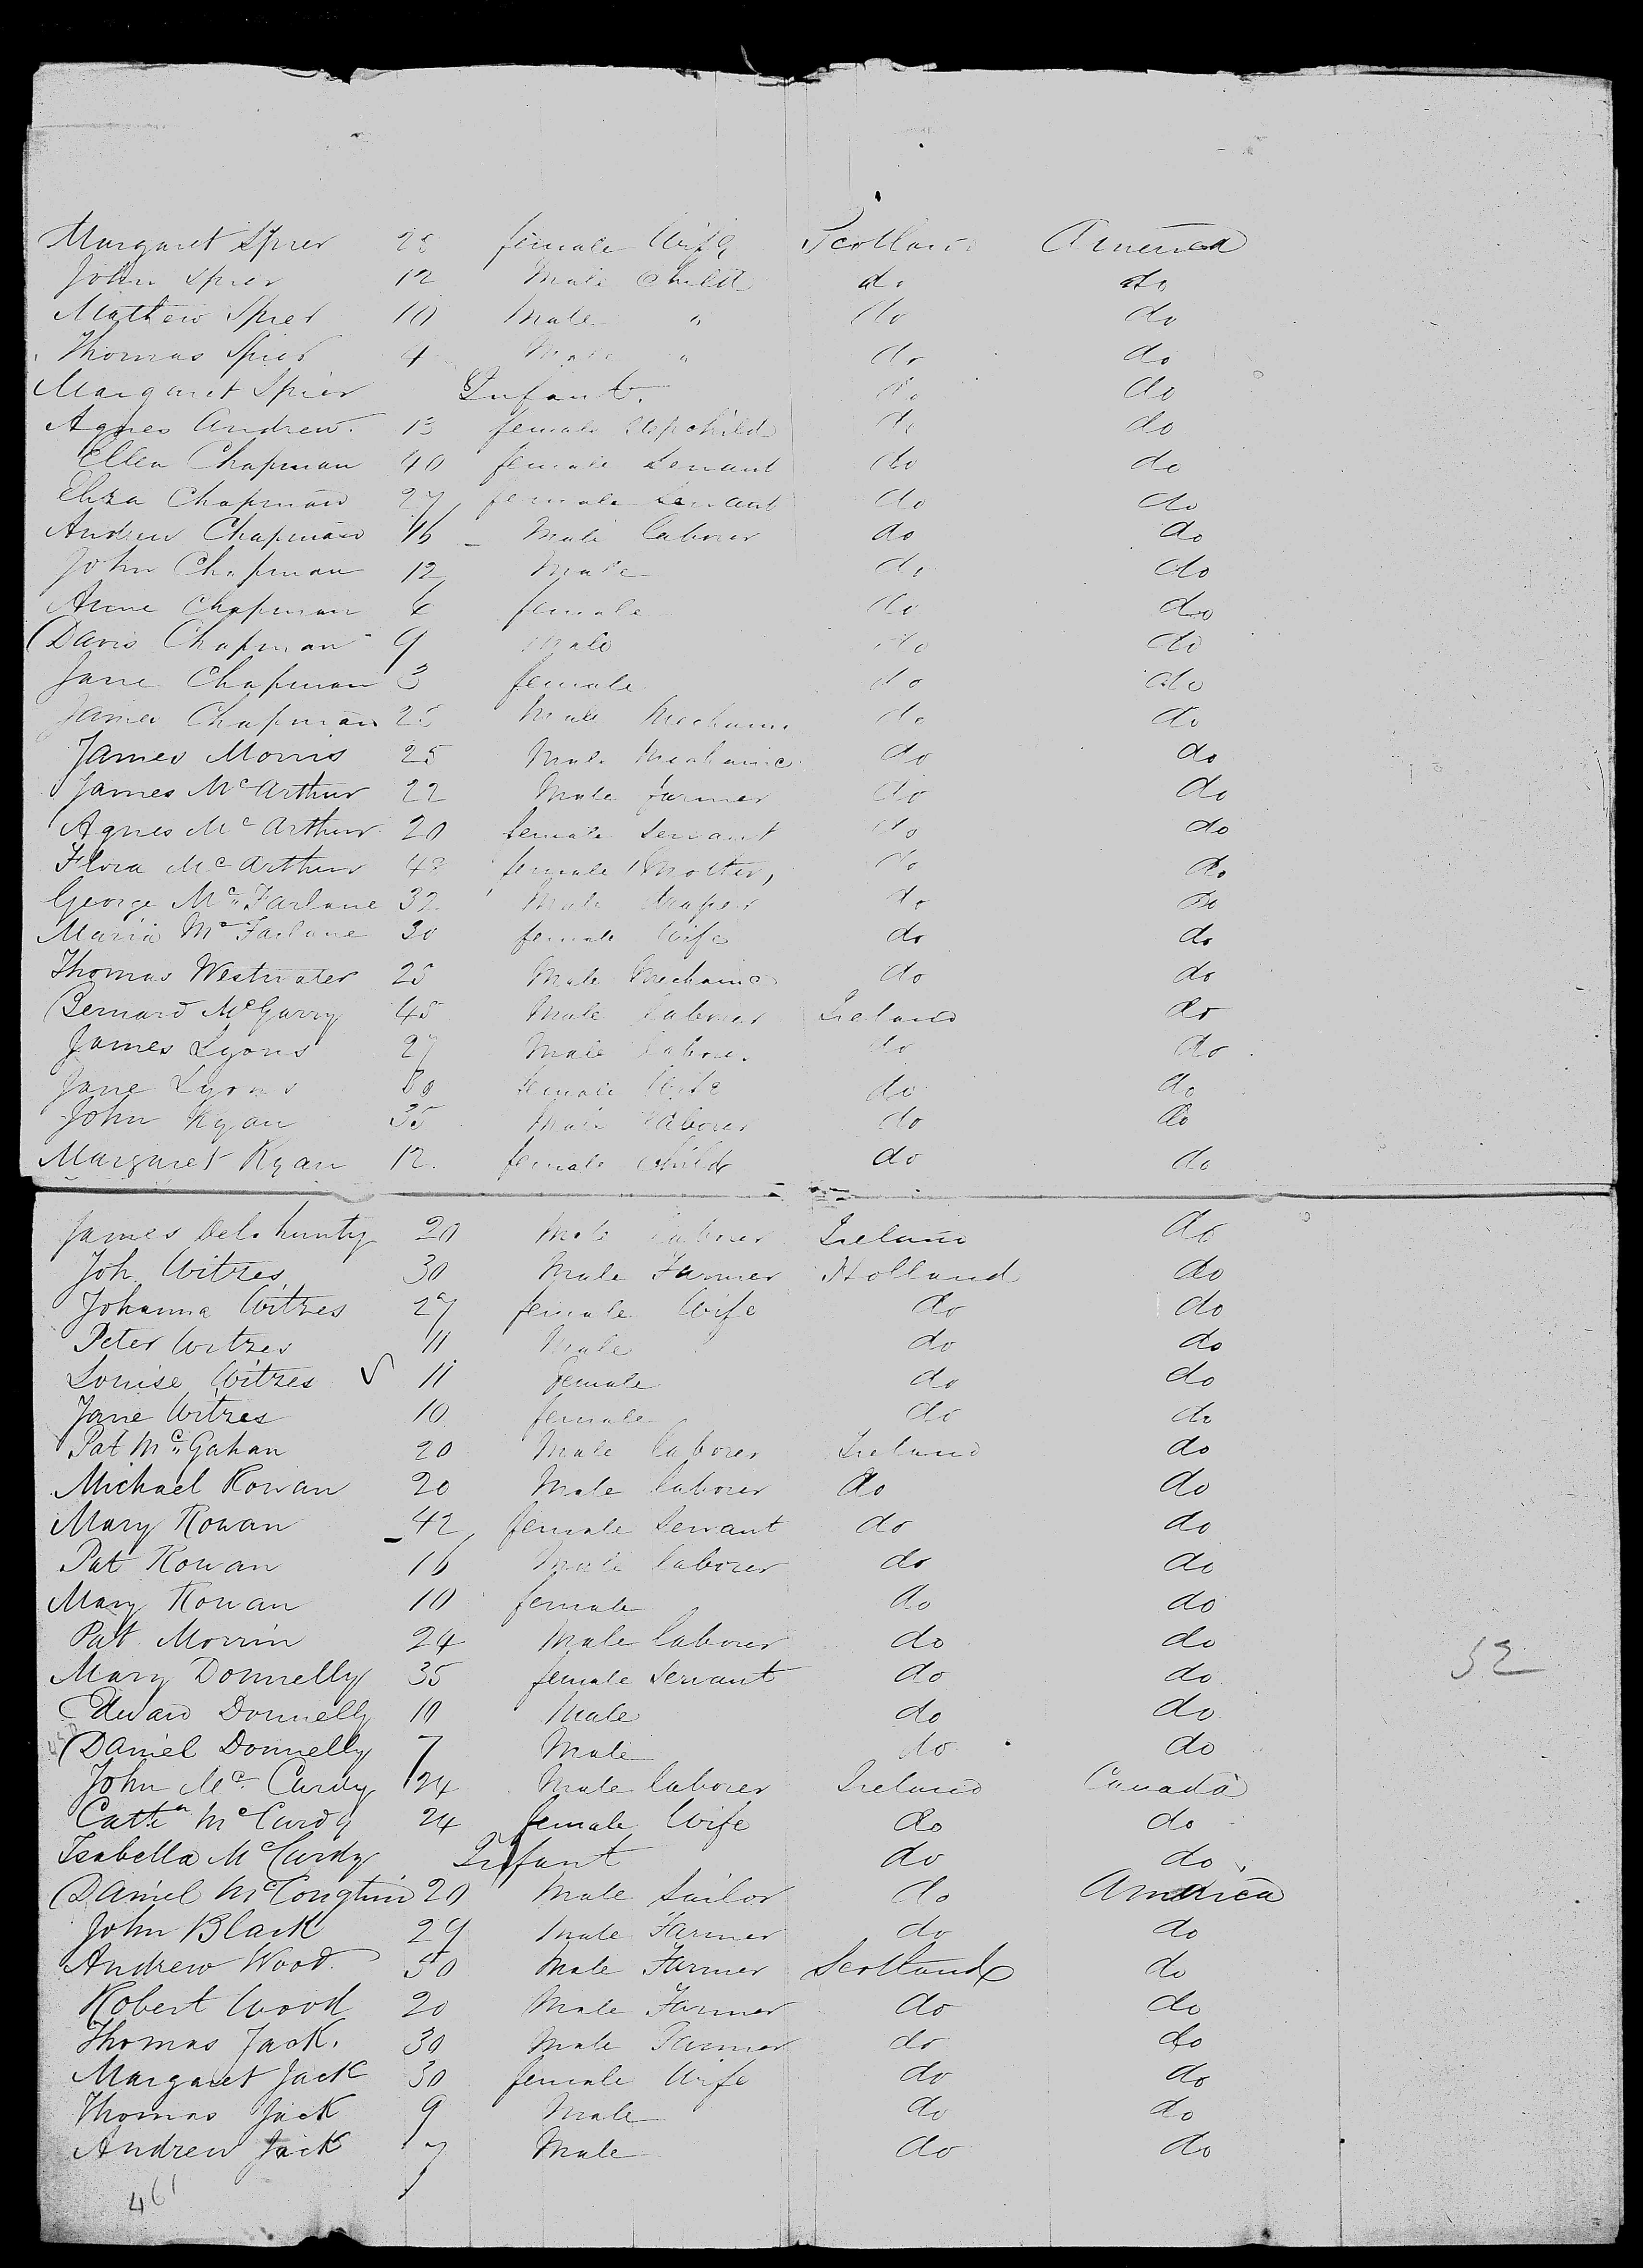 Margaret Spier 28 female Wife Scotland America
John Spier 12 Male Child do do
Mathew Spier 10 Male " do do
Thomas Spier 4 Male " do do
Margaret Spier Infant. do do
Agnes Andrew. 13 female Stepchild do do
Ellen Chapman 40 female Servant do do
Eliza Chapman 27 female Servant do do
Andrew Chapman 16 Male laborer do do
John Chapman 12 Male do do
Anne Chapman 6 female do do
David Chapman 9 Male do do
Jane Chapman 3 female do do
James Chapman Male Mechanic do do
James Morris 25 Male Mechanic do do
James McArthur 22 Male farmer do do
Agnes McArthur 20 female Servant do do
Flora McArthur 48 female Mother, do do
George McFarlane 32 Male draper do do
Maria McFarlane 30 female Wife do do
Thomas Westwater 25 Male Mechanic do do
Bernard McGarry 45 Male laborer Ireland do
James Lyons 27 Male laborer do do
Jane Lyons female Wife do do
John Ryan 35 Male laborer do do
Margaret Ryan 12 female Child do do
James Delahunty 20 Male laborer Ireland do
Joh. Witzes 30 Male Farmer Holland do
Johanna Witzes 27 female Wife do do
Peter Witzes 11 Male do do
Louise Witzes 11 female do do
Jane Witzes 10 female do do
Pat McGahan 20 Male laborer Ireland do
Michael Rowan 20 Male laborer do do
Mary Rowan 42 female Servant do do
Pat Rowan 16 Male laborer do do
Mary Rowan 10 female do do
Pat Morrin 24 Male laborer do do
52
Mary Donnelly 35 female Servant do do
Edward Donnelly 10 Male do do
Daniel Donnelly 7 Male do do
John McCurdy 24 Male laborer Ireland Canada
Cathn McCurdy 24 female Wife do do
Isabella McCurdy Infant do do
Daniel 20 Male Sailor do America
John Black 29 Male Farmer do do
Andrew Wood 50 Male Farmer Scotland do
Robert Wood 20 Male Farmer do do
Thomas Jack. 30 Male Farmer do do
Margaret Jack 30 female Wife do do
Thomas Jack 9 Male do do
Andrew Jack 7 Male do do
461